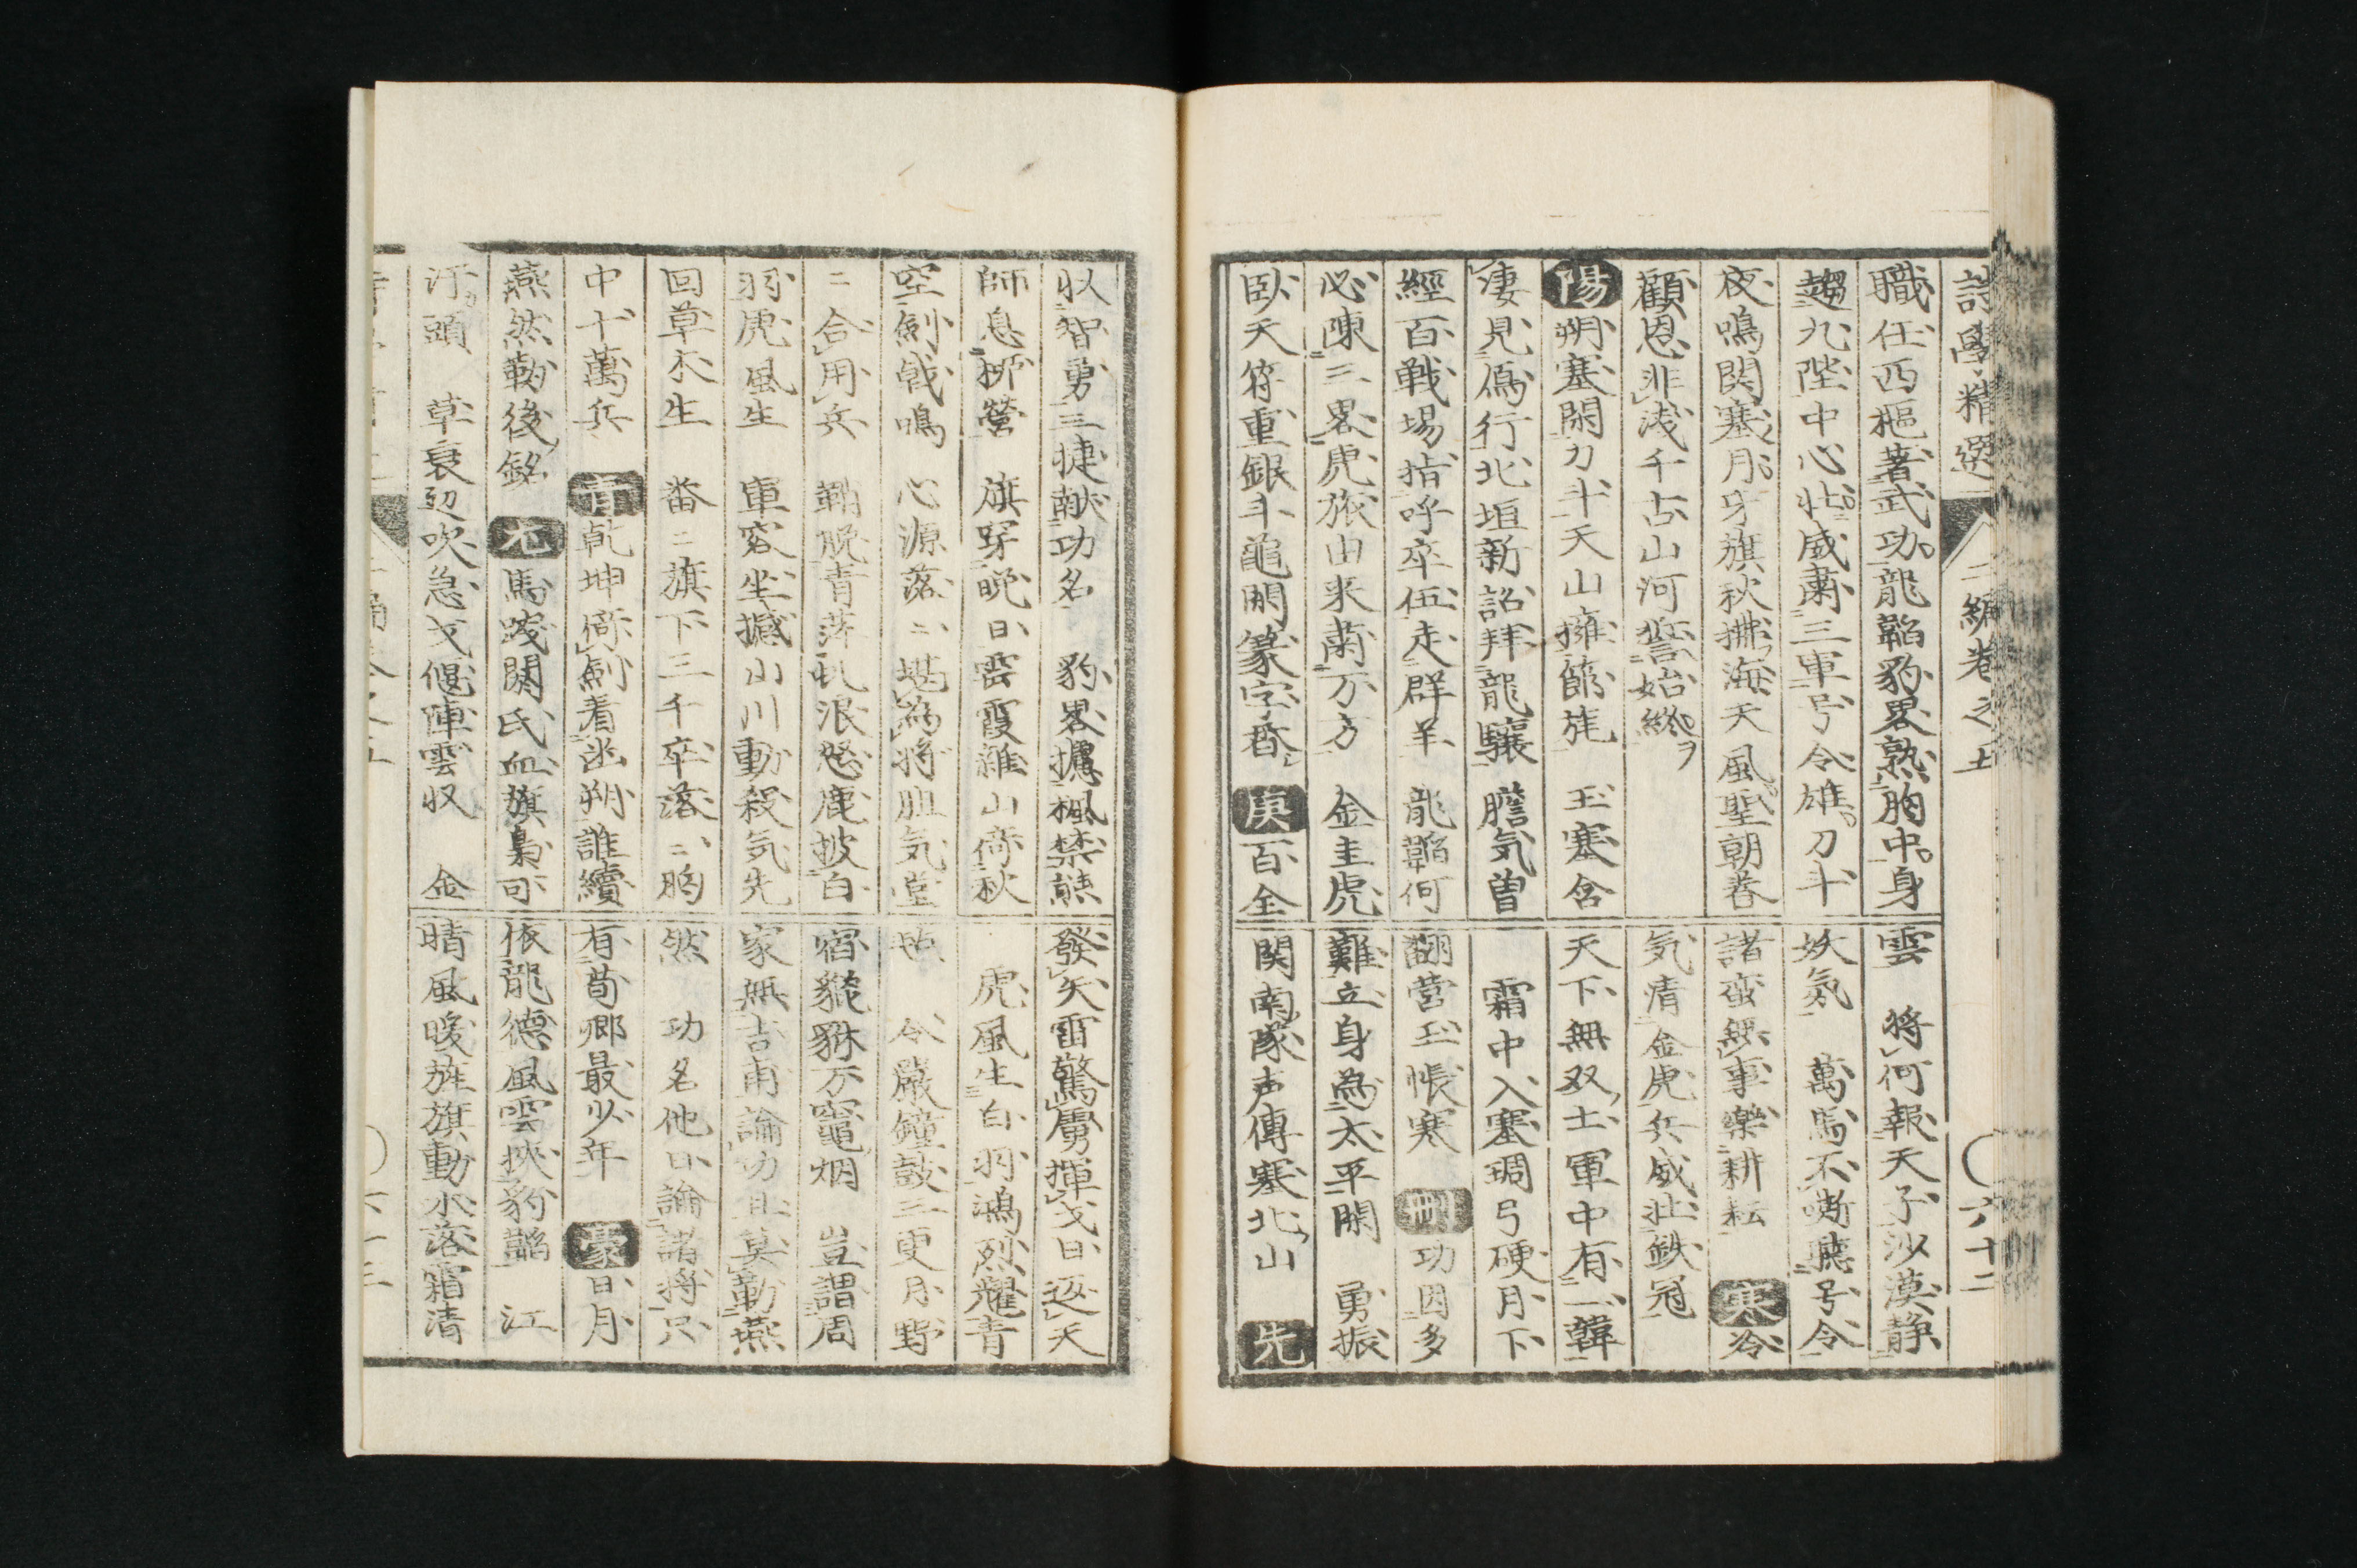 詩學精選
二編卷之上
六十二
職任西樞著武功龍韜豹畧熟胸中身
趨九陛中心壯威肅三軍号令雄刀斗
夜鳴関塞月牙旗秋拂海天風聖朝眷
顧恩非淺千古山河誓始終
陽朔塞閑刀斗天山擁節旄 玉塞含
淒見鴈行北垣新詔拜龍驤 膽気曽
經百戦場指呼卒伍走群羊 龍韜何
必陳三畧虎旅由来肅万方 金圭虎
臥天符重銀斗龜開篆字香 庚百全
雲 将何報天子沙漠静
妖氣 萬馬不嘶聴号令
諸蛮無事樂耕耘 寒冷
気清金虎兵威壮鉄冠
天下無双士軍中有一韓
霜中入塞琱弓硬月下
翻営玉帳寒 刪功因多
難立身為太平閑 勇振
関南隊声傳塞北山 先
収智勇三捷献功名 豹畧攄楓禁熊
師息栁營 旗穿晩日雲霞雜山倚秋
空劍戟鳴 心源落二堪為将胆気堂
二合用兵 鞘脱青萍飢浪怒鹿披白
羽虎風生 軍容坐撼山川動殺気先
回草木生 番二旗下三千卒落二胸
中十萬兵 青乾坤倚劍着幽朔誰續
燕然勒後銘 尤馬踐閼氏血旗梟可
汗頭 草衰辺吹急戈偃陣雲収 金
發矢雷驚虜揮戈日返天
虎風生白羽鴻烈耀青
令嚴鐘鼓三更月野
宿貔貅万竈烟 豈謂周
家無吉甫論功且莫勒燕
然 功名他日論諸将只
有荀卿最少年 豪日月
依龍德風雲挾豹韜 江
晴風暖旌旗動水落霜清